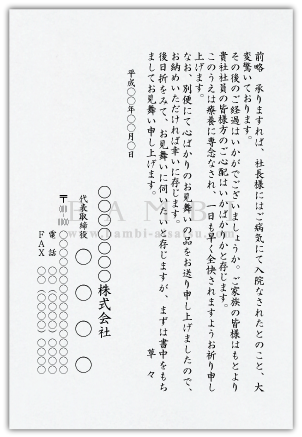 前略　承りますれば、社長様にはご病気にて入院なされたとのこと、大
変驚いております。
その後のご経過はいかがでございましょうか。ご家族の皆様はもとより
貴社社員の皆様方のご心配はいかばかりかと存じます。
このうえは療養に専念なされ、一日も早く全快されますようお祈り申し
上げます。
なお、別便にて心ばかりのお見舞いの品をお送り申し上げましたので、
お納めいただければ幸いに存じます。
後日折をみて、お見舞いに伺いたいと存じますが、まずは書中をもち
ましてお見舞い申し上げます。
草々
平成〇〇年〇〇月〇日
〇〇〇〇〇〇〇株式会社
代表取締役　〇　〇　〇　〇
電話
FAX
BAMBI